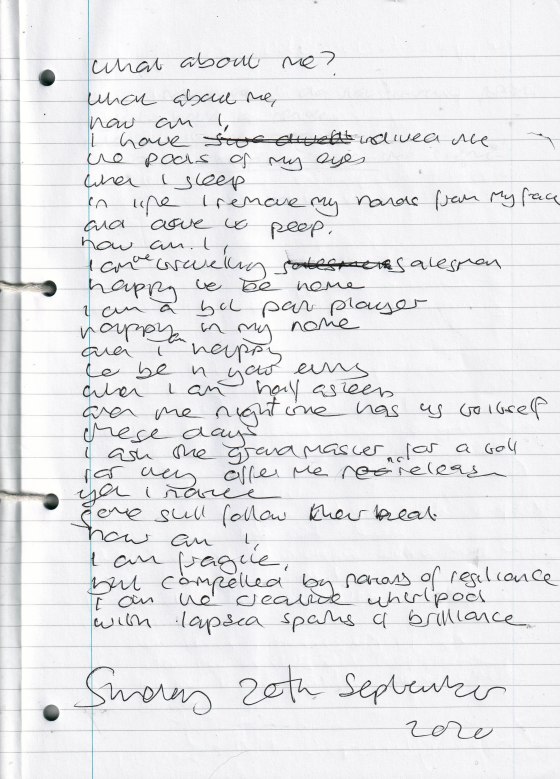 what about me?
what about me,
how am I,
I have indived the
the pools of my eyes
when I sleep
in life I remove my hands from my face
and dare to peep.
how am I,
I am the travelling salesman
happy to be home
I am a bit part player
happy in my home
and I happy
to be in your arms
when I am half asleep
and the night time has us to itself
these days
I ask the grandmaster for a
for they offer me no release
yet I notice
some still follow their beat
how am I,
I am fragile,
but compelled by notions of resiliance
I am the creative whirlpool
with lapsed sparks of brilliance
Sunday 20th September
2020